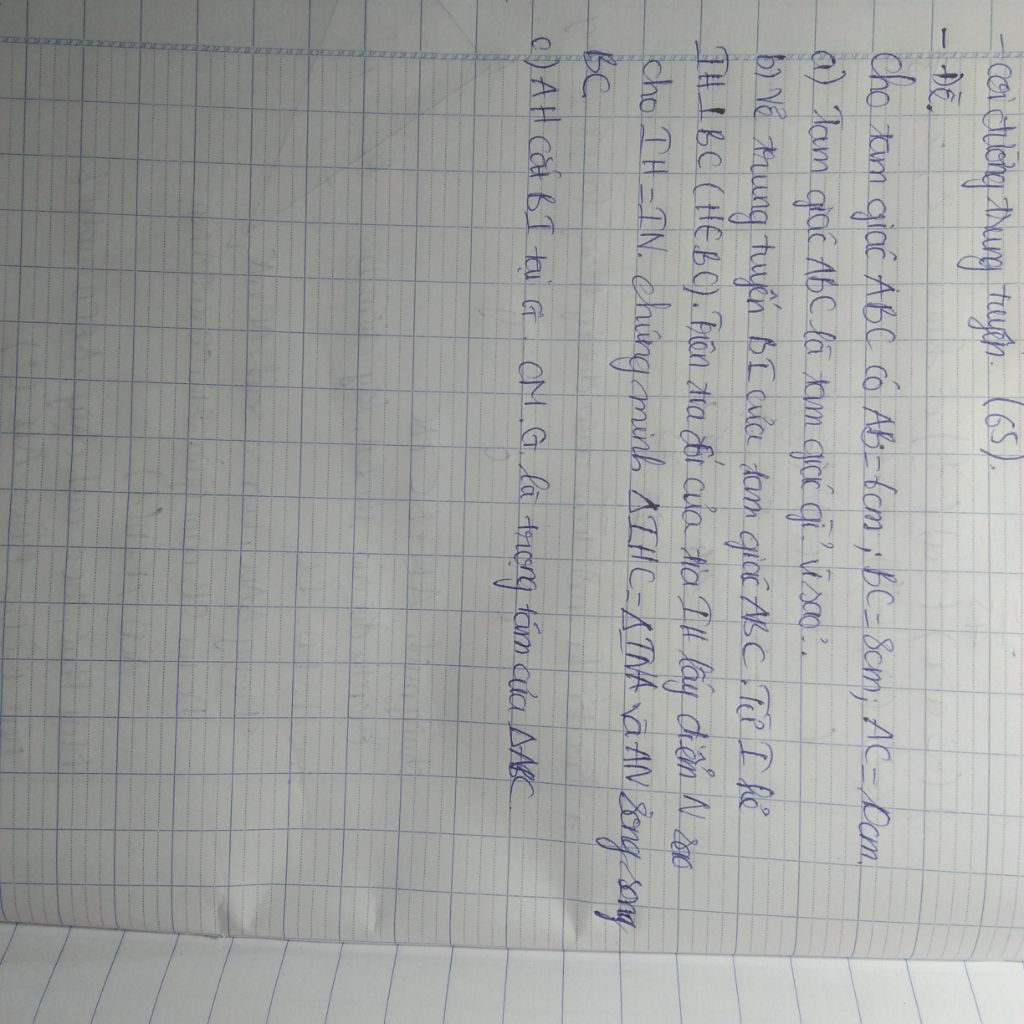 - coi đường trung tuyến. (65).
- Đề.
Cho tam giác ABC có AB=6cm; BC=8cm; AC=10cm
a) Tam giác ABC là tam giác gì? vì sao?.
b) Vẽ trung tuyến BI của tam giác ABC. Từ I kẻ
IH⊥BC (H∈BC). Trên tia đối của tia IH lấy điểm N sao
cho IH=IN. chứng minh ΔIHC=ΔINA và AN song song
BC.
c) AH cắt BI tại G. CM. G. là trọng tâm của ΔABC.